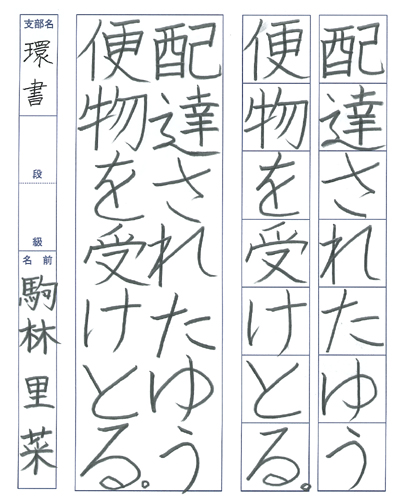 配達されたゆう
便物を受けとる。
配達されたゆう
便物を受けとる。
支部名
環書
段
級
名前
駒林里菜